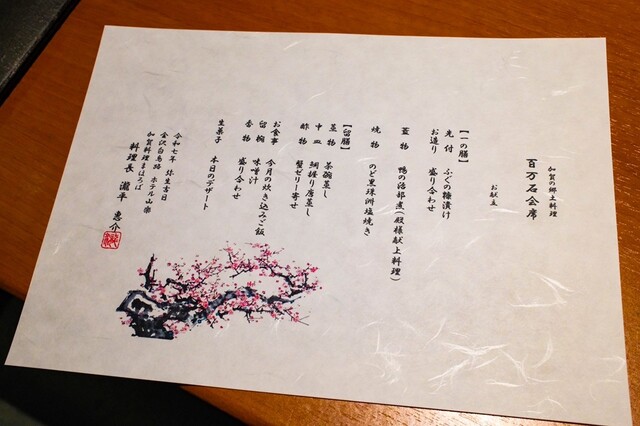 加賀の郷土料理
百万石会席
お献立
【一の膳】
先付 ふぐの糠漬け
お造り 盛り合わせ
蓋物 鴨の治部煮(殿様献上料理)
焼物 のど黒珠洲塩焼き
【留膳】
蒸物 茶碗蒸し
中皿 鯛蓮り唐蒸し
酢物 蟹ゼリー寄せ
お食事 今月の炊き込みご飯
留椀 味噌汁
香物 盛り合わせ
生菓子 本日のデザート
令和七年 弥生吉日
金沢白鳥路 ホテル山楽
加賀料理まほろば
料理長 瀧平 恵介